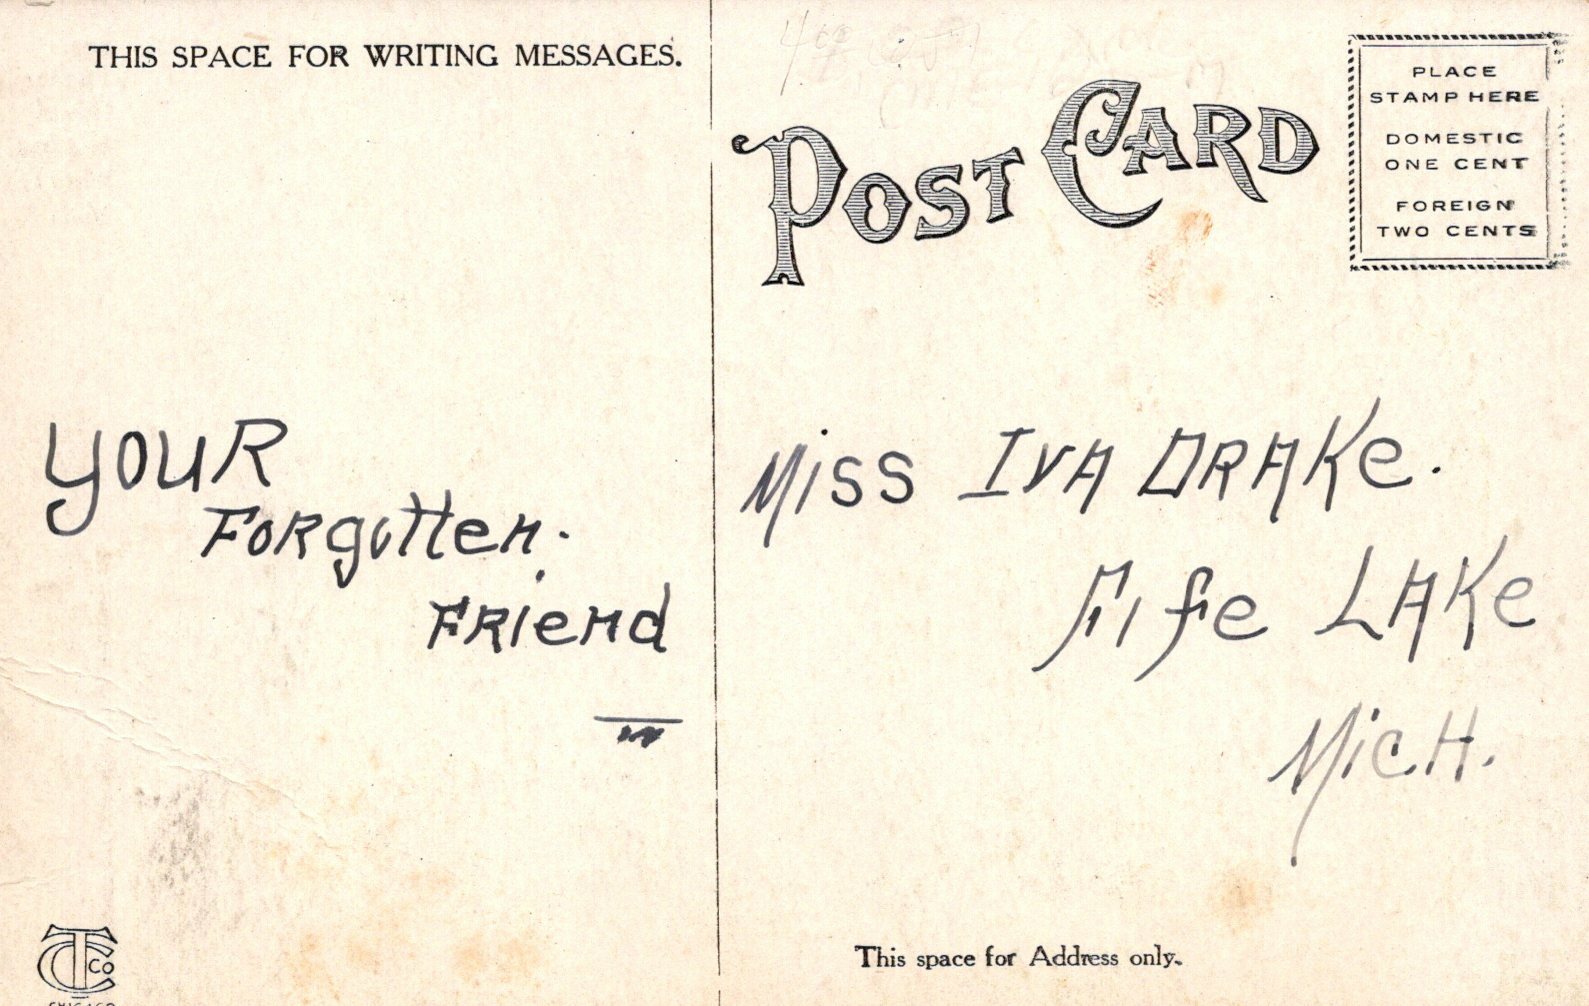 THIS SPACE FOR WRITING MESSAGES.
POST CARD
PLACE
STAMP HERE
DOMESTIC
ONE CENT
FOREIGN
TWO CENTS
YOUR
FORgotten.
FRiend
Miss IVA DRAKe.
Fife LAKe
MicH.
This space for Address only.
CTCo
CHICAGO